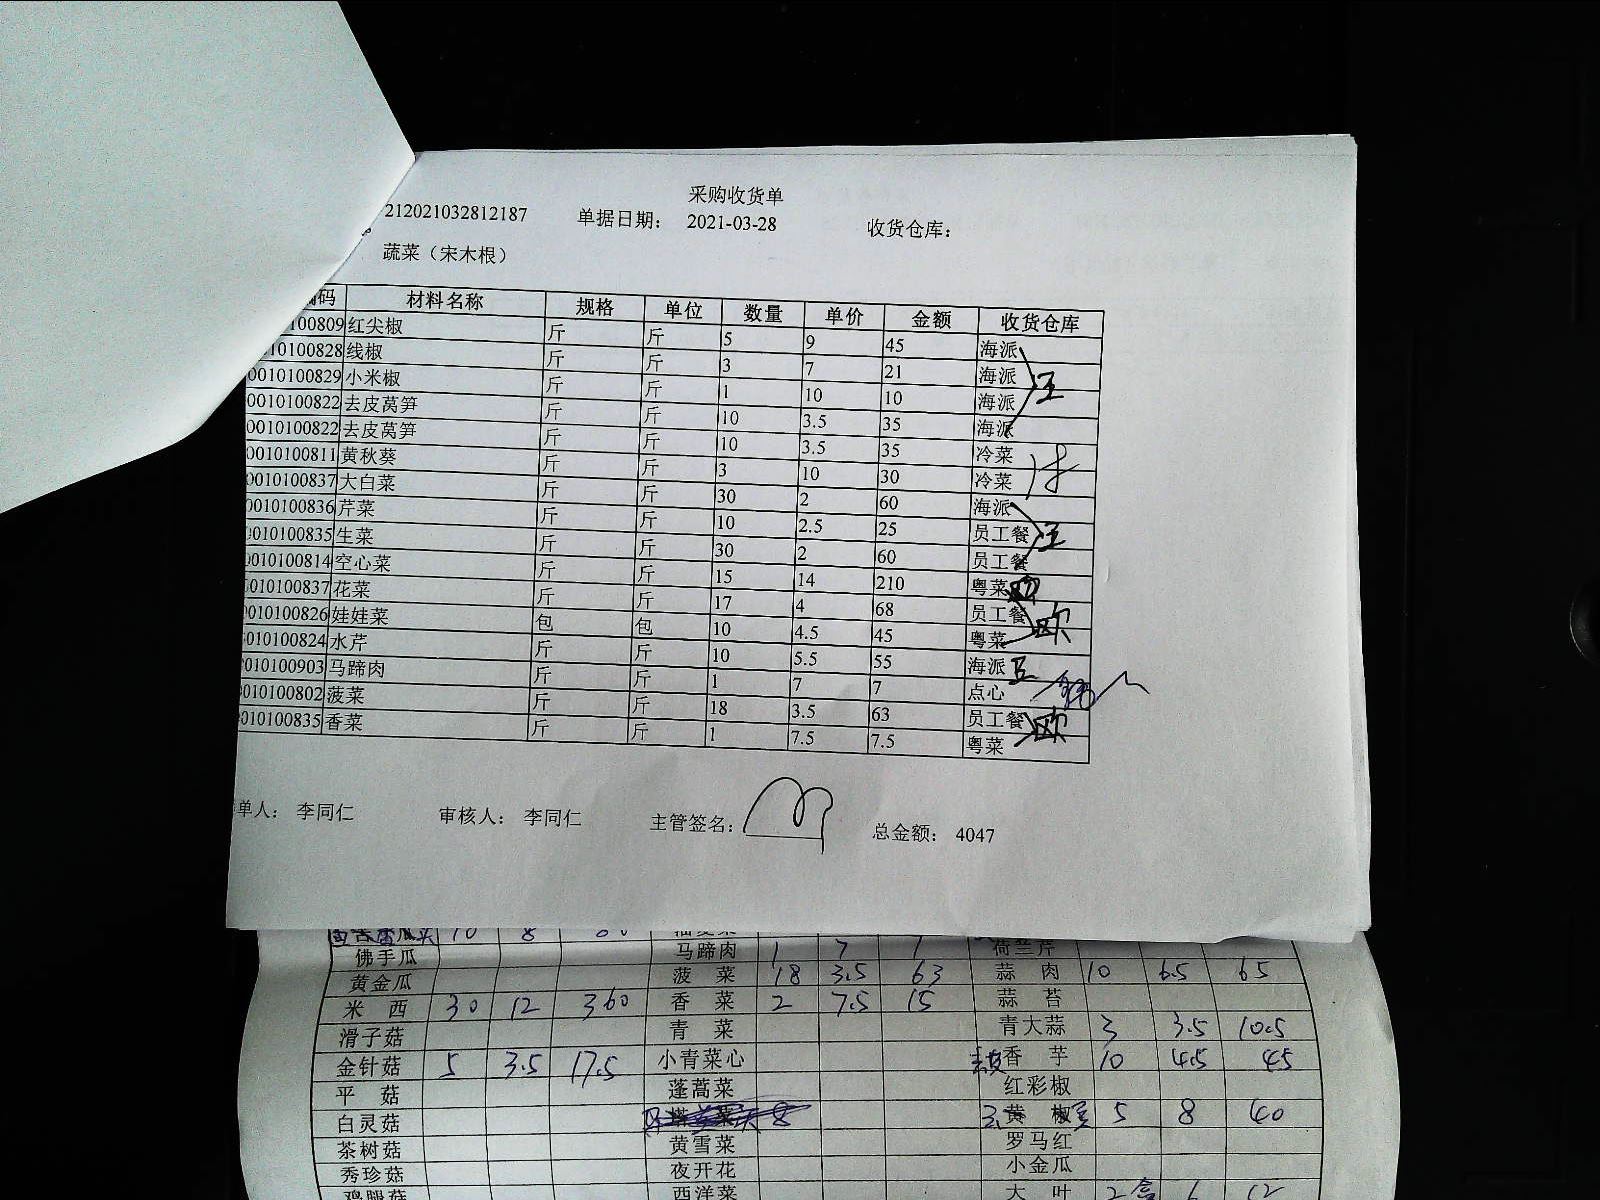 采购收货单
212021032812187 单据日期： 2021-03-28 收货仓库：
蔬菜（宋木根）
码 材料名称 规格 单位 数量 单价 金额 收货仓库
100809 红尖椒 斤 斤 5 9 45 海派
10100828 线椒 斤 斤 3 7 21 海派
0010100829 小米椒 斤 斤 1 10 10 海派 王
0010100822 去皮莴笋 斤 斤 10 3.5 35 海派
0010100822 去皮莴笋 斤 斤 10 3.5 35 冷菜
0010100811 黄秋葵 斤 斤 3 10 30 冷菜
0010100837 大白菜 斤 斤 30 2 60 海派
0010100836 芹菜 斤 斤 10 2.5 25 员工餐 王
0010100835 生菜 斤 斤 30 2 60 员工餐
0010100814 空心菜 斤 斤 15 14 210 粤菜
0010100837 花菜 斤 斤 17 4 68 员工餐 欧
0010100826 娃娃菜 包 包 10 4.5 45 粤菜
010100824 水芹 斤 斤 10 5.5 55 海派 王
010100903 马蹄肉 斤 斤 1 7 7 点心
010100802 菠菜 斤 斤 18 3.5 63 员工餐 欧
010100835 香菜 斤 斤 1 7.5 7.5 粤菜
单人： 李同仁 审核人： 李同仁 主管签名： 总金额： 4047
10 8 80
佛手瓜 马蹄肉 1 7 7 荷兰芹
黄金瓜 菠菜 18 3.5 63 蒜肉 10 6.5 65
米西 30 12 360 香菜 2 7.5 15 蒜苔
滑子菇 青菜 青大蒜 3 3.5 10.5
金针菇 5 3.5 17.5 小青菜心 香芋 10 4.5 45
平菇 蓬蒿菜 红彩椒
白灵菇 8 黄椒 5 8 40
茶树菇 黄雪菜 罗马红
秀珍菇 夜开花 小金瓜
鸡腿菇 西洋菜 大叶 2盒 6 12